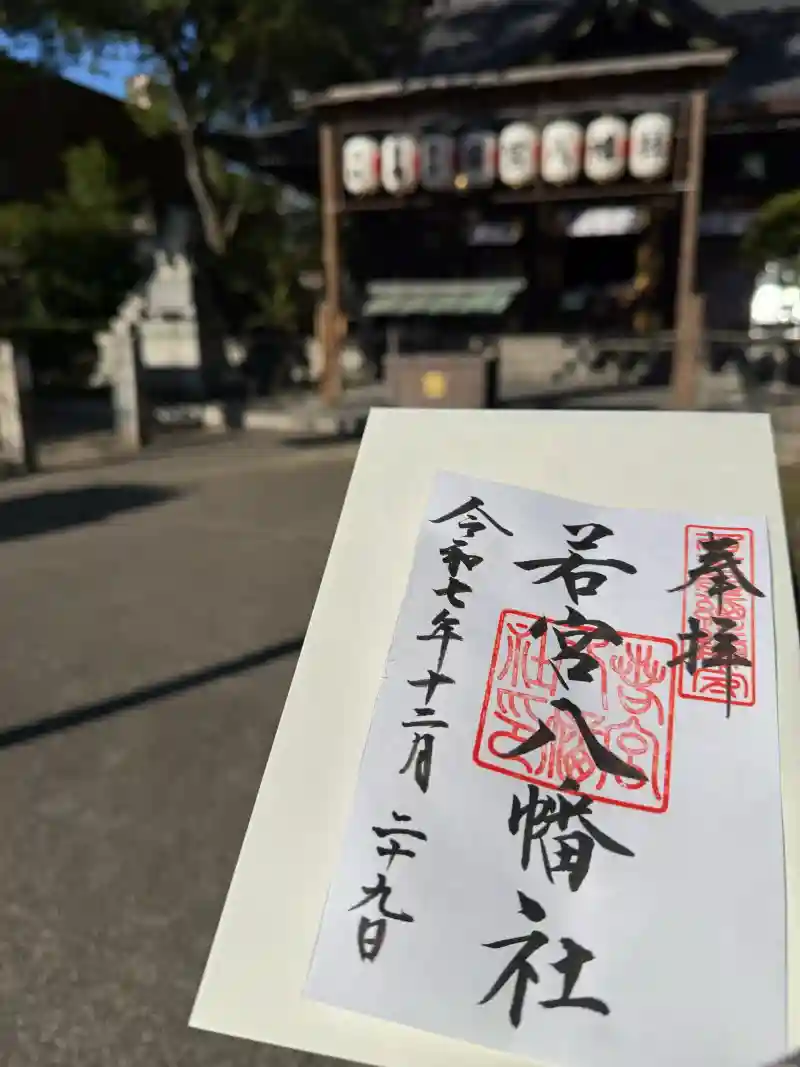 奉拝
若宮八幡社
令和七年十二月二十九日